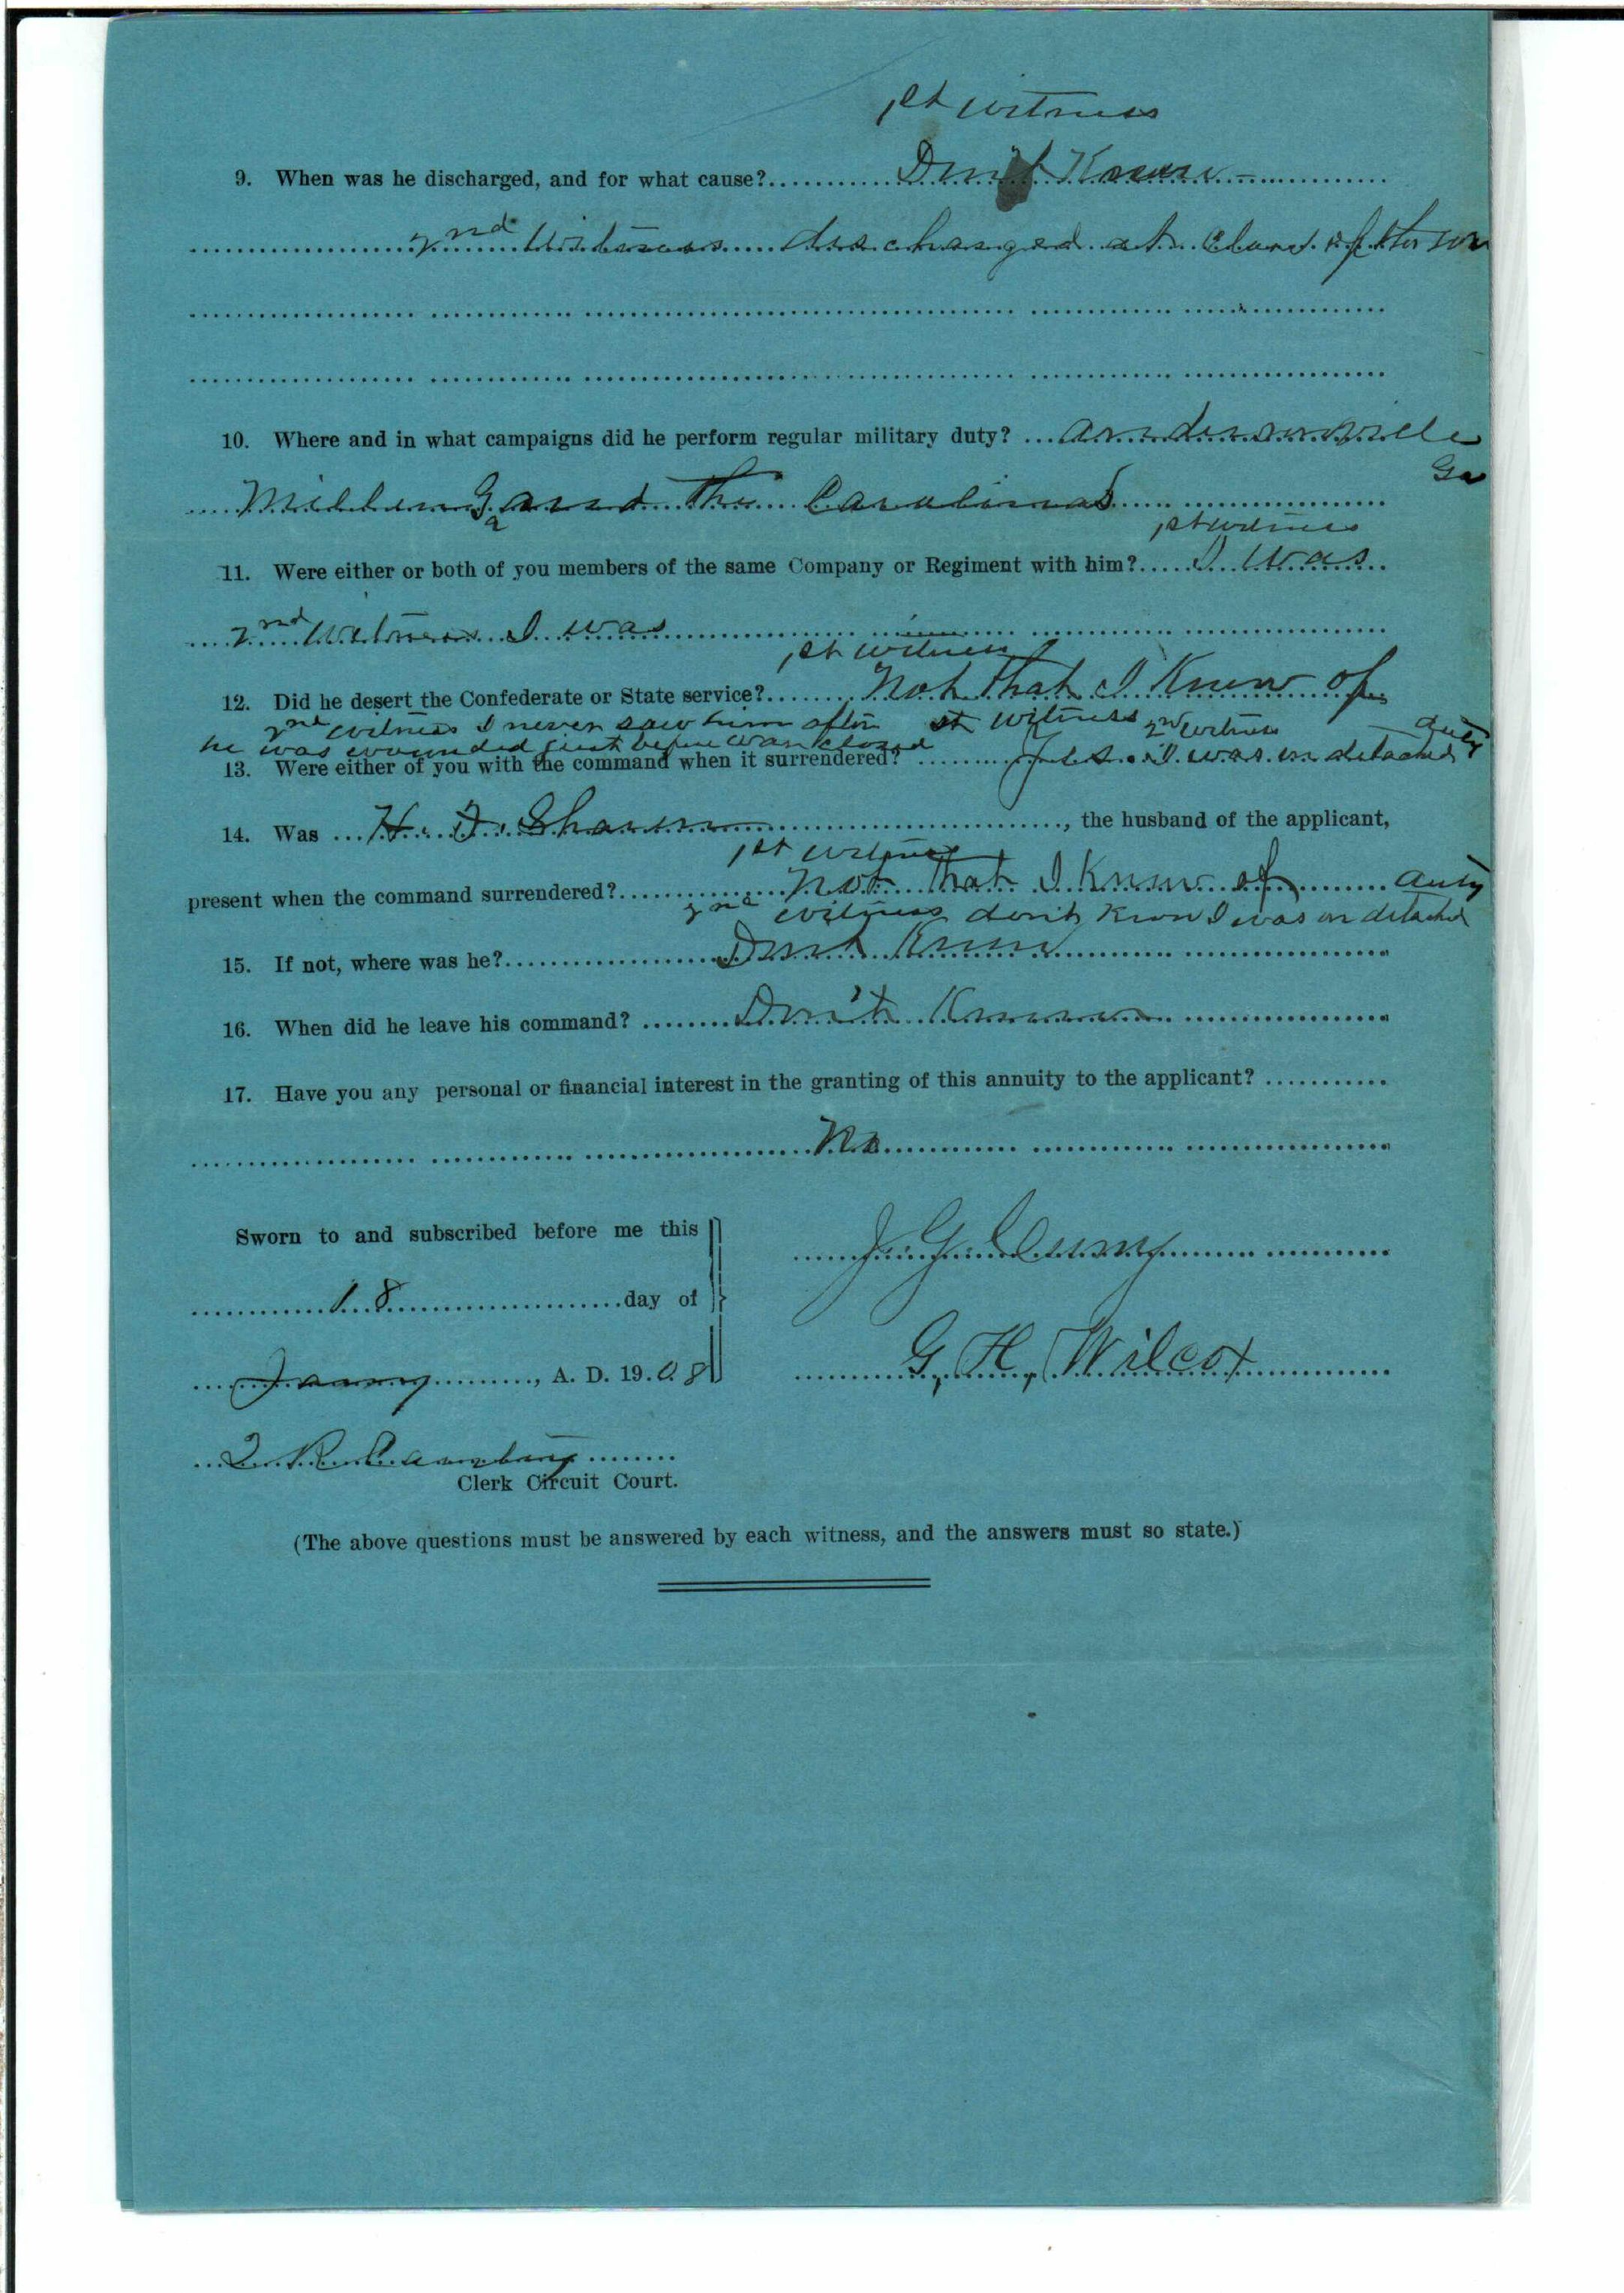 1st witness
9. When was he discharged, and for what cause? Don't Know
2nd Witness discharged at close of the war
10. Where and in what campaigns did he perform regular military duty? Andersonville Ga
Millen Ga and The Carolinas
1st witness
11. Were either or both of you members of the same Company or Regiment with him? I was
2nd Witness I was
1st witness
12. Did he desert the Confederate or State service? Not that I Know of
2nd witness I never saw him after
he was wounded just before war closed
st witness 2nd witness
13. Were either of you with the command when it surrendered? Yes. I was on detached duty
14. Was H. , the husband of the applicant,
1st witness
present when the command surrendered? Not that I Know of
2nd witness don't know I was on detached duty
15. If not, where was he? Don't Know
16. When did he leave his command? Don't Know
17. Have you any personal or financial interest in the granting of this annuity to the applicant?
No
Sworn to and subscribed before me this
J G
18 day of
G, H, Wilcox
Jany, A. D. 1908
Clerk Circuit Court.
(The above questions must be answered by each witness, and the answers must so state.)